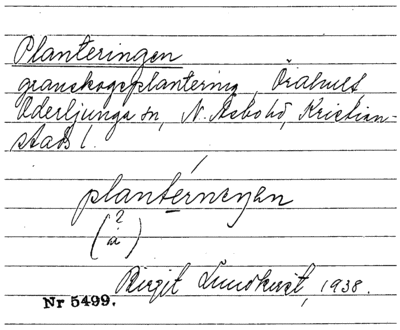 Planteringen
granskogsplantering, Örahult,
Oderljunga sn, N. Åsbo hd, Kristian-
stads l.
planterneŋen
(2 a)
Birgit Lundkvist, 1938.
Nr 5499.